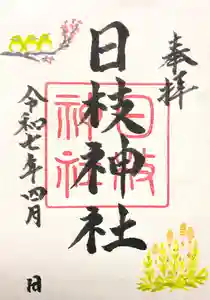 奉拝
日枝神社
日枝
神社
令和七年四月 日